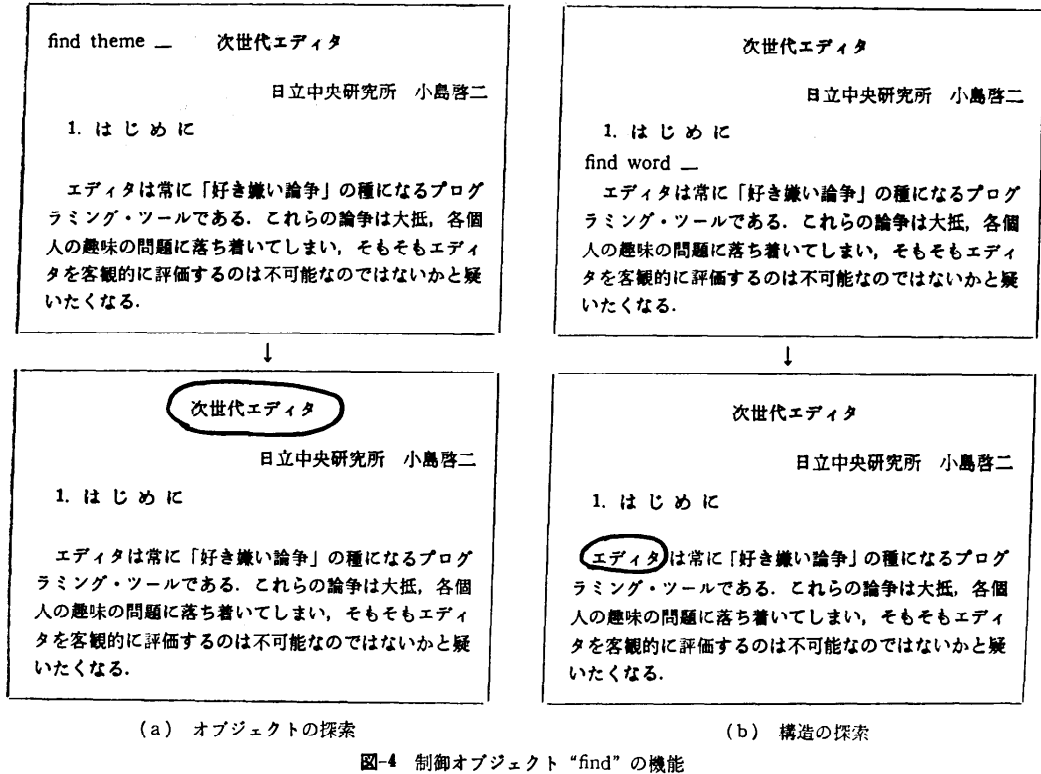 find theme _ 次世代エディタ
日立中央研究所 小島啓二
1. はじめに
エディタは常に「好き嫌い論争」の種になるプログ
ラミング・ツールである．これらの論争は大抵，各個
人の趣味の問題に落ち着いてしまい，そもそもエディ
タを客観的に評価するのは不可能なのではないかと疑
いたくなる．
↓
次世代エディタ
日立中央研究所 小島啓二
1. はじめに
エディタは常に「好き嫌い論争」の種になるプログ
ラミング・ツールである．これらの論争は大抵，各個
人の趣味の問題に落ち着いてしまい，そもそもエディ
タを客観的に評価するのは不可能なのではないかと疑
いたくなる．
(a) オブジェクトの探索
次世代エディタ
日立中央研究所 小島啓二
1. はじめに
find word _
エディタは常に「好き嫌い論争」の種になるプログ
ラミング・ツールである．これらの論争は大抵，各個
人の趣味の問題に落ち着いてしまい，そもそもエディ
タを客観的に評価するのは不可能なのではないかと疑
いたくなる．
↓
次世代エディタ
日立中央研究所 小島啓二
1. はじめに
エディタは常に「好き嫌い論争」の種になるプログ
ラミング・ツールである．これらの論争は大抵，各個
人の趣味の問題に落ち着いてしまい，そもそもエディ
タを客観的に評価するのは不可能なのではないかと疑
いたくなる．
(b) 構造の探索
図-4 制御オブジェクト “find” の機能